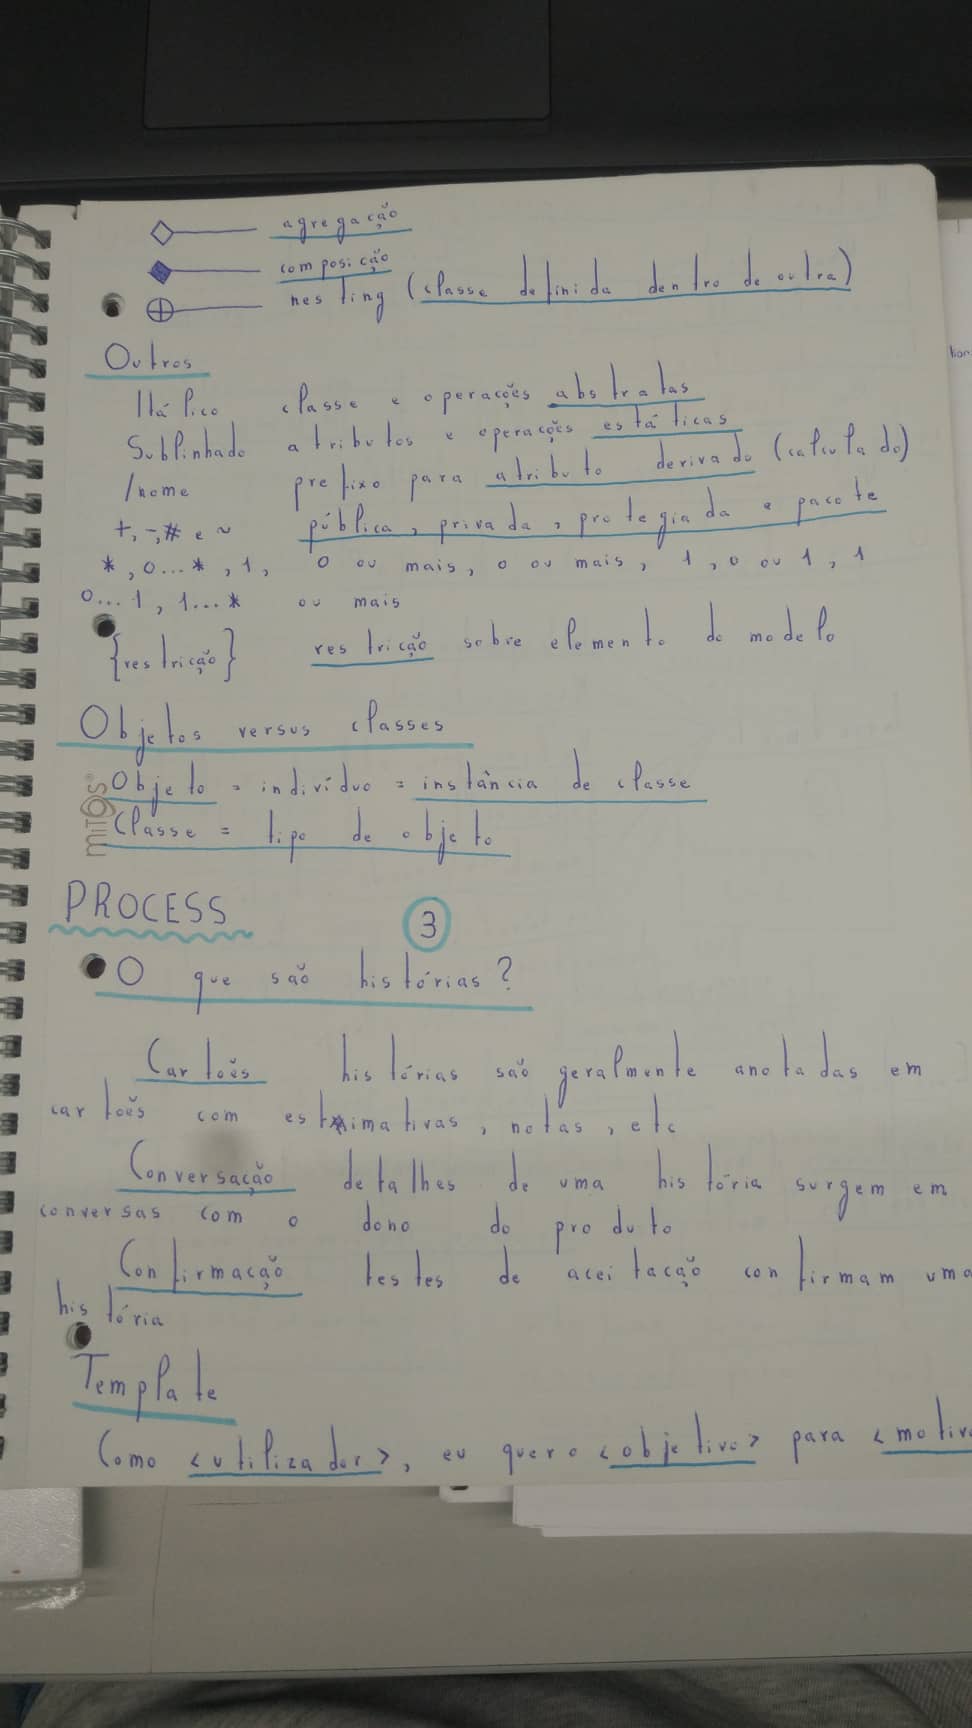 agregação
composição
nesting (classe definida dentro de outra)
Outros
Itálico classe e operações abstratas
Sublinhado atributos e operações estáticas
/nome prefixo para atributo derivado (calculado)
+,-,# e ~ pública, privada, protegiada e pacote
*, 0...*, 1, 0 ou mais, 0 ou mais, 1, 0 ou 1, 1
0...1, 1...* ou mais
{restrição} restrição sobre elemento do modelo
Objetos versus classes
Objeto = indivíduo = instância de classe
Classe = tipo de objeto
mitos
PROCESS 3
O que são histórias?
Cartões histórias são geralmente anotadas em
cartões com estimativas, notas, etc
Conversação detalhes de uma história surgem em
conversas com o dono do produto
Confirmação testes de aceitação confirmam uma
história
Template
Como <utilizador>, eu quero <objetivo> para <motiv